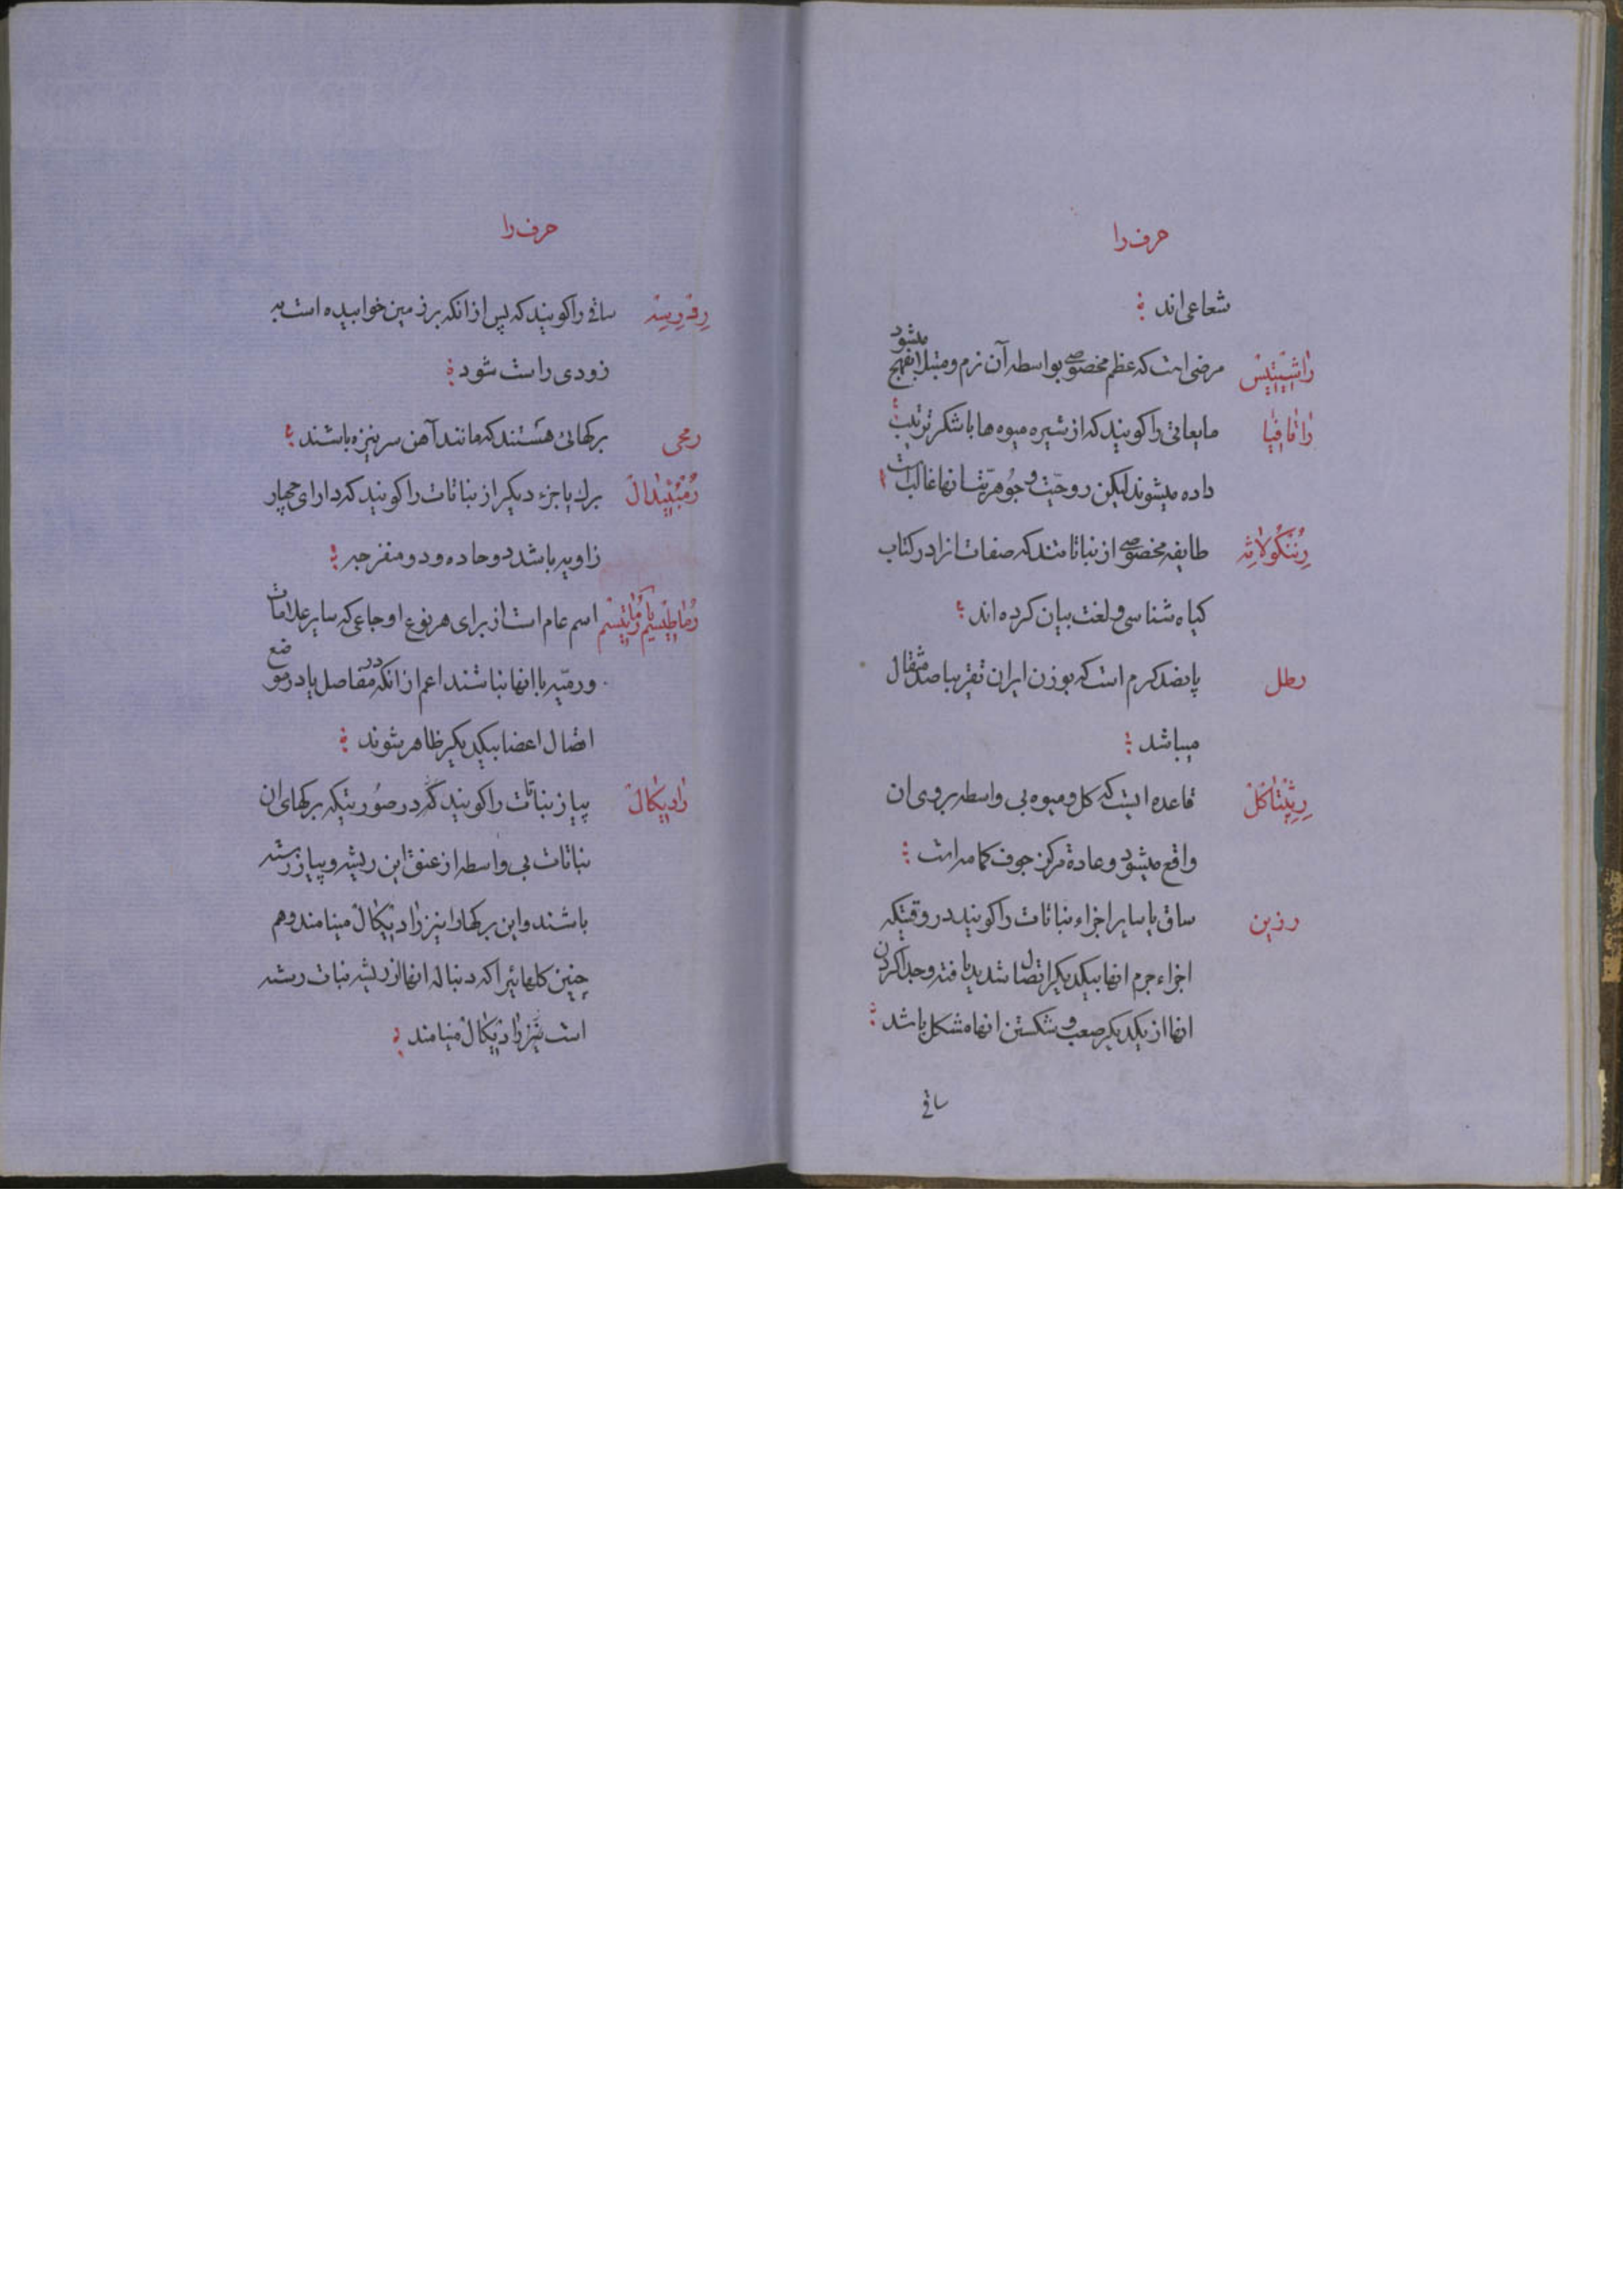 حرف را
شعاعی اند
راشیتیس مرضی است که عظم مخصوصی بواسطه آن نرم و مبتلا میشود
راقافیا مایعاتی را کویند که از شیره میوه ها با شکر ترتیب
داده میشوند لیکن روحیّت و جوهریّت انها غالب است
رننکولاثه طایفه مخصوصی از نباتاتند که صفات انرا در کتاب
کیاه شناسی و لغت بیان کرده اند
رطل پانصد کرم است که بوزن ایران تقریبا صد مثقال
میباشد
رثپتاکل قاعده ایست که کل و میوه بی واسطه بر وی ان
واقع میشود و عادة مرکز جوف کمامه است
رزین ساق یا سایر اجزاء نباتات را کویند در وقتیکه
اجزاء جرم انها بیکدیکر اتصال شدید یافته و جدا کردن
انها از یکدیکر صعب و شکستن انها مشکل باشد
ساقی
حرف را
ساقی را کویند که پس از انکه بر زمین خوابیده است به
زودی راست شود
رمحی برکهائی هستند که مانند آهن سر نیزه باشند
رمبئیدال برك یا جزء دیکر از نباتات را کویند که دارای چهار
زاویه باشد دو حاده و دو منفرجه
رماطیسم یا رماتیسم اسم عام است از برای هر نوع اوجاعی که سایر علامات
ورمیّه با انها نباشند اعم از انکه در مفاصل یا در موضع
اتصال اعضا بیکدیکر ظاهر شوند
رادیکال پیاز نباتات را کویند که در صورتیکه برکهای ان
نباتات بی واسطه از عنق این ریشه و پیاز رسته
باشند و این برکها را نیز رادیکال مینامند و هم
چنین کلهائیرا که دنباله انها از ریشه نبات رسته
است نیز رادیکال مینامند